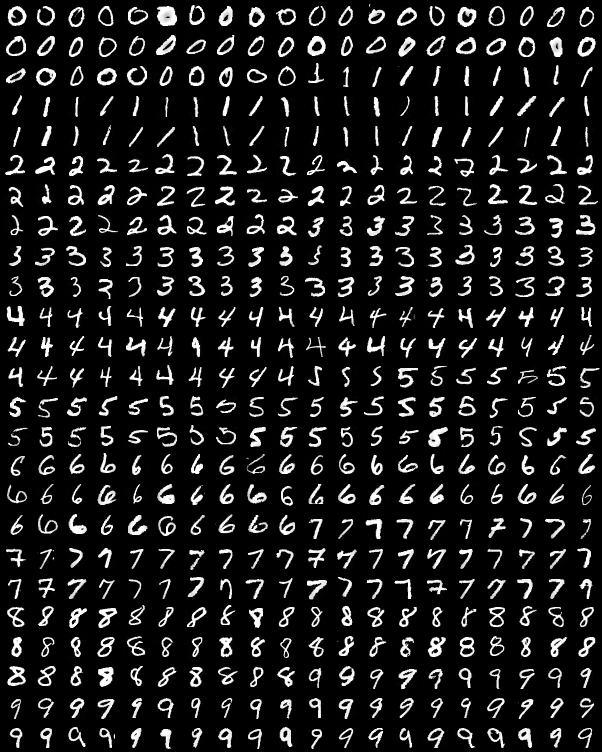 0 0 0 0 0 0 0 0 0 0 0 0 0 0 0 0 0 0 0 0
0 0 0 0 0 0 0 0 0 0 0 0 0 0 0 0 0 0 0 0
0 0 0 0 0 0 0 0 0 0 1 1 1 1 1 1 1 1 1 1
1 1 1 1 1 1 1 1 1 1 1 1 1 1 1 1 1 1 1 1
1 1 1 1 1 1 1 1 1 1 1 1 1 1 1 1 1 1 1 1
2 2 2 2 2 2 2 2 2 2 2 2 2 2 2 2 2 2 2 2
2 2 2 2 2 2 2 2 2 2 2 2 2 2 2 2 2 2 2 2
2 2 2 2 2 2 2 2 2 2 3 3 3 3 3 3 3 3 3 3
3 3 3 3 3 3 3 3 3 3 3 3 3 3 3 3 3 3 3 3
3 3 3 3 3 3 3 3 3 3 3 3 3 3 3 3 3 3 3 3
4 4 4 4 4 4 4 4 4 4 4 4 4 4 4 4 4 4 4 4
4 4 4 4 4 4 4 4 4 4 4 4 4 4 4 4 4 4 4 4
4 4 4 4 4 4 4 4 4 4 5 5 5 5 5 5 5 5 5 5
5 5 5 5 5 5 5 5 5 5 5 5 5 5 5 5 5 5 5 5
5 5 5 5 5 5 5 5 5 5 5 5 5 5 5 5 5 5 5 5
6 6 6 6 6 6 6 6 6 6 6 6 6 6 6 6 6 6 6 6
6 6 6 6 6 6 6 6 6 6 6 6 6 6 6 6 6 6 6 6
6 6 6 6 6 6 6 6 6 6 7 7 7 7 7 7 7 7 7 7
7 7 7 7 7 7 7 7 7 7 7 7 7 7 7 7 7 7 7 7
7 7 7 7 7 7 7 7 7 7 7 7 7 7 7 7 7 7 7 7
8 8 8 8 8 8 8 8 8 8 8 8 8 8 8 8 8 8 8 8
8 8 8 8 8 8 8 8 8 8 8 8 8 8 8 8 8 8 8 8
8 8 8 8 8 8 8 8 8 8 9 9 9 9 9 9 9 9 9 9
9 9 9 9 9 9 9 9 9 9 9 9 9 9 9 9 9 9 9 9
9 9 9 9 9 9 9 9 9 9 9 9 9 9 9 9 9 9 9 9